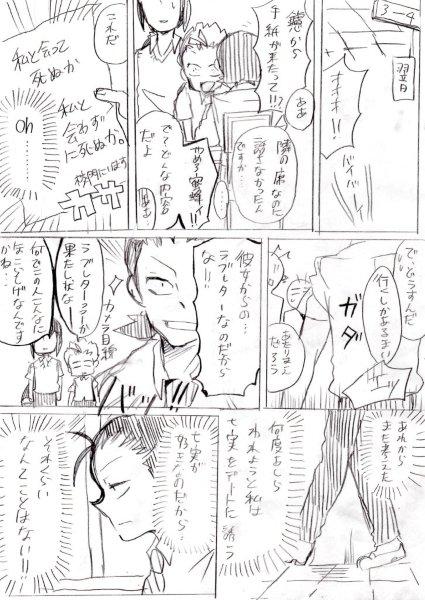 3-4
翌日
オオオオ!!
バイバーイ
手紙が来たって!!?
ああ
隣の席なのに
話さなかったん
ですか…
やめろ蜜蜂!!
で?どんな内容
だよ
これだ
私と会って
死ぬか
私と
会わずに死ぬか。
校門にいます
カサ
oh
………
で、どうすんだ
行くしかあるまい
ガタ
だろう
彼女からの…
ラブレターなのだから
な!!
カメラ目線
ラブレターつーか
果たし状な
何でこの人こんなに
なんです
かね…
あれから
また考えた
何度あしら
われようと私は
七実をデートに誘う
七実が
好きなのだから…
それくらい
なんてことはない!!